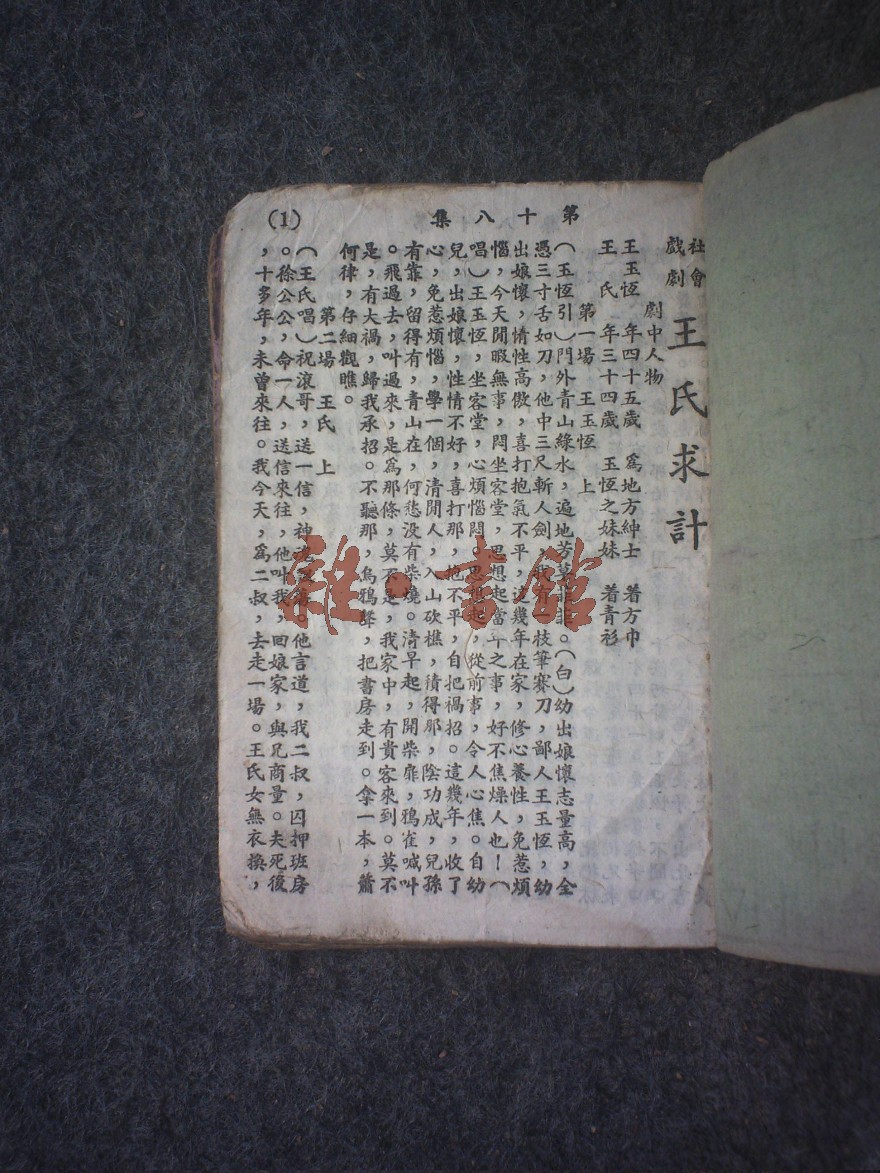 第十八集
(1)
社會
戲劇
王氏求計
劇中人物
王玉恆 年四十五歲 為地方紳士 着方巾
王 氏 年三十四歲 玉恆之妹妹 着青衫
第一場 王玉恆 上
(玉恆引)門外青山綠水,遍地芳。(白)幼出娘懷志量高,全
憑三寸舌如刀,他中三尺斬人劍,我有一枝筆賽刀,鄙人王玉恆,幼
出娘懷,情性高傲,喜打抱氣不平,這幾年在家,修心養性,免惹煩
惱,今天閒暇無事,悶坐客堂,思想起當年之事,好不焦燥人也!(
唱)王玉恆,坐客堂,心煩惱悶。思想起,從前事,令人心焦。自幼
兒,出娘懷,性情不好,喜打那,抱不平,自把禍招。這幾年,收了
心,免惹煩惱,學一個,清閒人,入山砍樵,積得那,陰功成,兒孫
有靠,留得有,青山在,何愁沒有柴燒。清早起,開柴扉,鴉雀喊叫
。飛過去,叫過來,是為那條,莫不是,我家中,有貴客來到。莫不
是,有大禍,歸我承招。不聽那,烏鴉聲,把書房走到。拿一本,蕭
何律,仔細觀瞧。
第二場 王氏 上
(王氏唱)祝滾哥,送一信,神。他言道,我二叔,囚押班房
。徐公公,命一人,送信來往,他叫我,回娘家,與兄商量。夫死後
,十多年,未曾來往。我今天,為二叔,去走一場。王氏女無衣換,
雜·書館